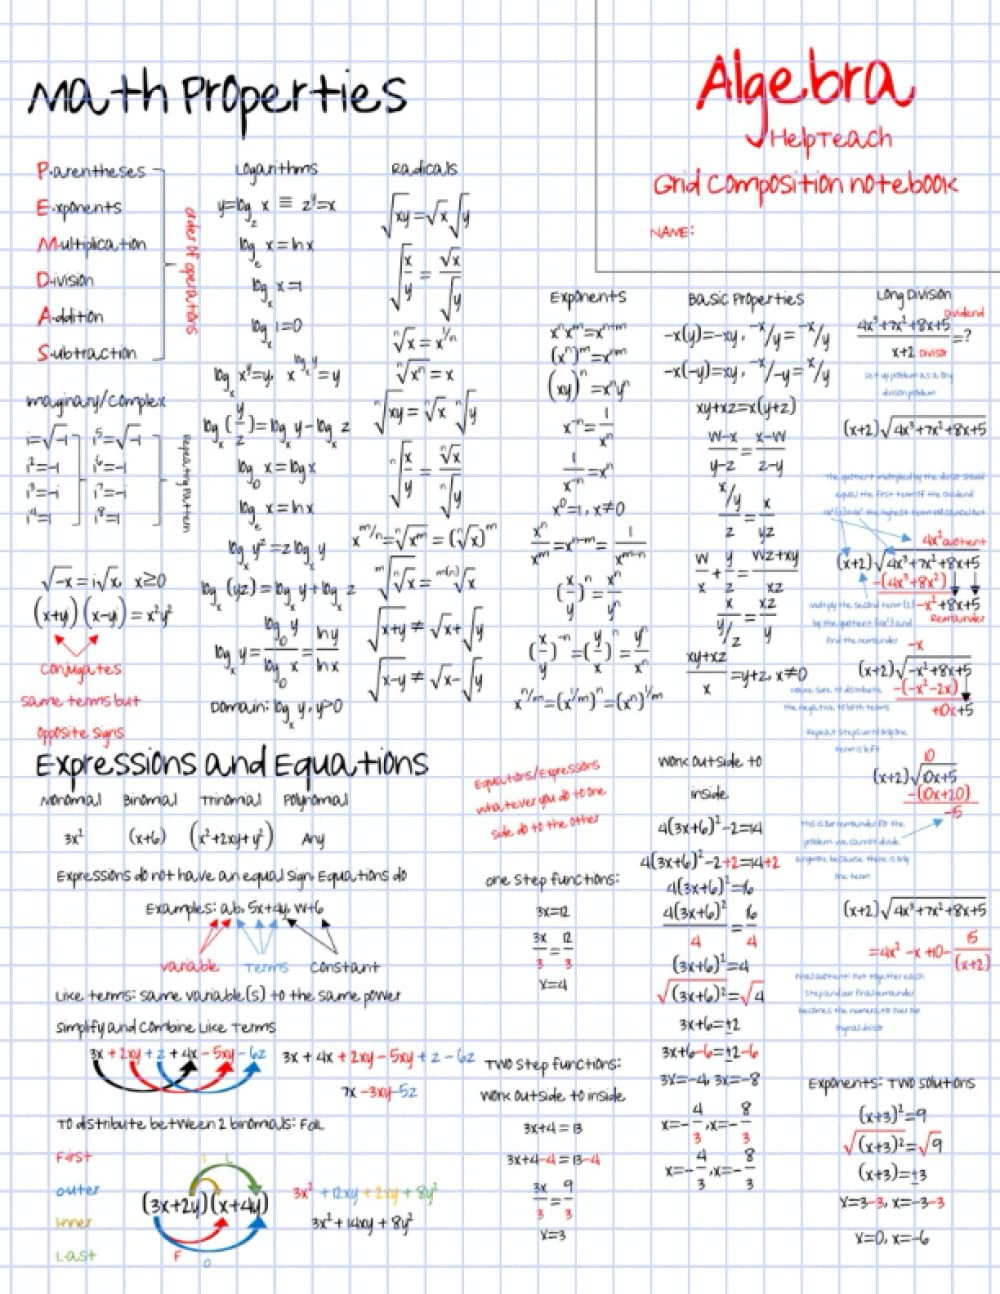 Math Properties
Algebra
HelpTeach
Grid Composition notebook
NAME:
Parentheses
Exponents
Multiplication
Division
Addition
Subtraction
order of operations
Imaginary/Complex
i=√-1 i⁵=√-1
i²=-1 i⁶=-1
i³=-i i⁷=-i
i⁴=1 i⁸=1
Repeating Pattern
√-x = i√x, x≥0
(x+y)(x-y) = x²y²
Conjugates
same terms but
opposite signs
Logarithms
y=log_z x ≡ z^y=x
log_e x = ln x
log_x x = 1
log_x 1=0
log_x x^y=y, x^(log_x y)=y
log_x (y/z)= log_x y - log_x z
log_10 x = log x
log_e x = ln x
log_x y² = z log_x y
log_x (yz) = log_x y + log_x z
log_x y = log_10 y / log_10 x = ln y / ln x
Domain: log_x y, y>0
Radicals
√xy = √x √y
√(x/y) = √x/√y
ⁿ√x = x^(1/n)
ⁿ√xⁿ = x
ⁿ√xy = ⁿ√x ⁿ√y
ⁿ√(x/y) = ⁿ√x/ⁿ√y
x^(m/n) = ⁿ√x^m = (ⁿ√x)^m
m√ⁿ√x = m(n)√x
√x+y ≠ √x+√y
√x-y ≠ √x-√y
Exponents
xⁿx^m=x^(n+m)
(xⁿ)^m=x^(nm)
(xy)ⁿ=xⁿyⁿ
x⁻ⁿ=1/xⁿ
1/x⁻ⁿ=xⁿ
x⁰=1, x≠0
xⁿ/x^m=x^(n-m)=1/x^(m-n)
(x/y)ⁿ=xⁿ/yⁿ
(x/y)⁻ⁿ=(y/x)ⁿ=yⁿ/xⁿ
x^(n/m)=(x^(1/m))ⁿ=(xⁿ)^(1/m)
Basic Properties
-x(y)=-xy, -x/y=-x/y
-x(-y)=xy, -x/-y=x/y
xy+xz=x(y+z)
w-x/y-z=x-w/z-y
x/y/z=x/yz
w/x+y/z=wz+xy/xz
x/y/z=xz/y
xy+xz/x=y+z, x≠0
Long Division
Dividend
4x³+7x²+8x+5/x+2=?
Divisor
set up problem as a long
division problem
(x+2)√4x³+7x²+8x+5
The quotient multiplied by the divisor should
equal the first term of the dividend
4x² quotient
(x+2)√4x³+7x²+8x+5
-(4x³+8x²)
-x²+8x+5
Remainder
multiply the second term (2)
by the quotient (4x²) and
find the remainder
-x
(x+2)√-x²+8x+5
-(-x²-2x)
+10x+5
make sure to distribute
the negative to both terms
Repeat steps until only one
term is left
10
(x+2)√10x+5
-(10x+20)
-15
this is our remainder for the
problem we cannot divide
anymore because there is only
one term
(x+2)√4x³+7x²+8x+5
=4x²-x+10-15/(x+2)
Final quotient: Put together each
step and our final remainder
becomes the numerator over our
original divisor
Expressions and Equations
Monomial Binomial Trinomial Polynomial
3x² (x+6) (x²+2xy+y²) Any
Expressions do not have an equal sign. Equations do
Examples: ab, 5x+4y, w+6
variable Terms constant
Like terms: same variable(s) to the same power
Simplify and Combine Like Terms
3x + 2xy + z + 4x - 5xy - 6z 3x + 4x + 2xy - 5xy + z - 6z
7x -3xy -5z
To distribute between 2 binomials: Foil
First
outer
inner
Last
(3x+2y)(x+4y)
I L
F
O
3x² + 12xy + 2xy + 8y²
3x² + 14xy + 8y²
Equations/Expressions
whatever you do to one
side do to the other
one step functions:
3x=12
3x/3=12/3
x=4
Two Step functions:
Work outside to inside
3x+4=13
3x+4-4=13-4
3x/3=9/3
x=3
Work outside to
inside
4(3x+6)²-2=14
4(3x+6)²-2+2=14+2
4(3x+6)²=16
4(3x+6)²/4=16/4
(3x+6)²=4
√(3x+6)²=√4
3x+6=±2
3x+6-6=±2-6
3x=-4, 3x=-8
x=-4/3, x=-8/3
x=-4/3, x=-8/3
Exponents: Two solutions
(x+3)²=9
√(x+3)²=√9
(x+3)=±3
x=3-3, x=-3-3
x=0, x=-6